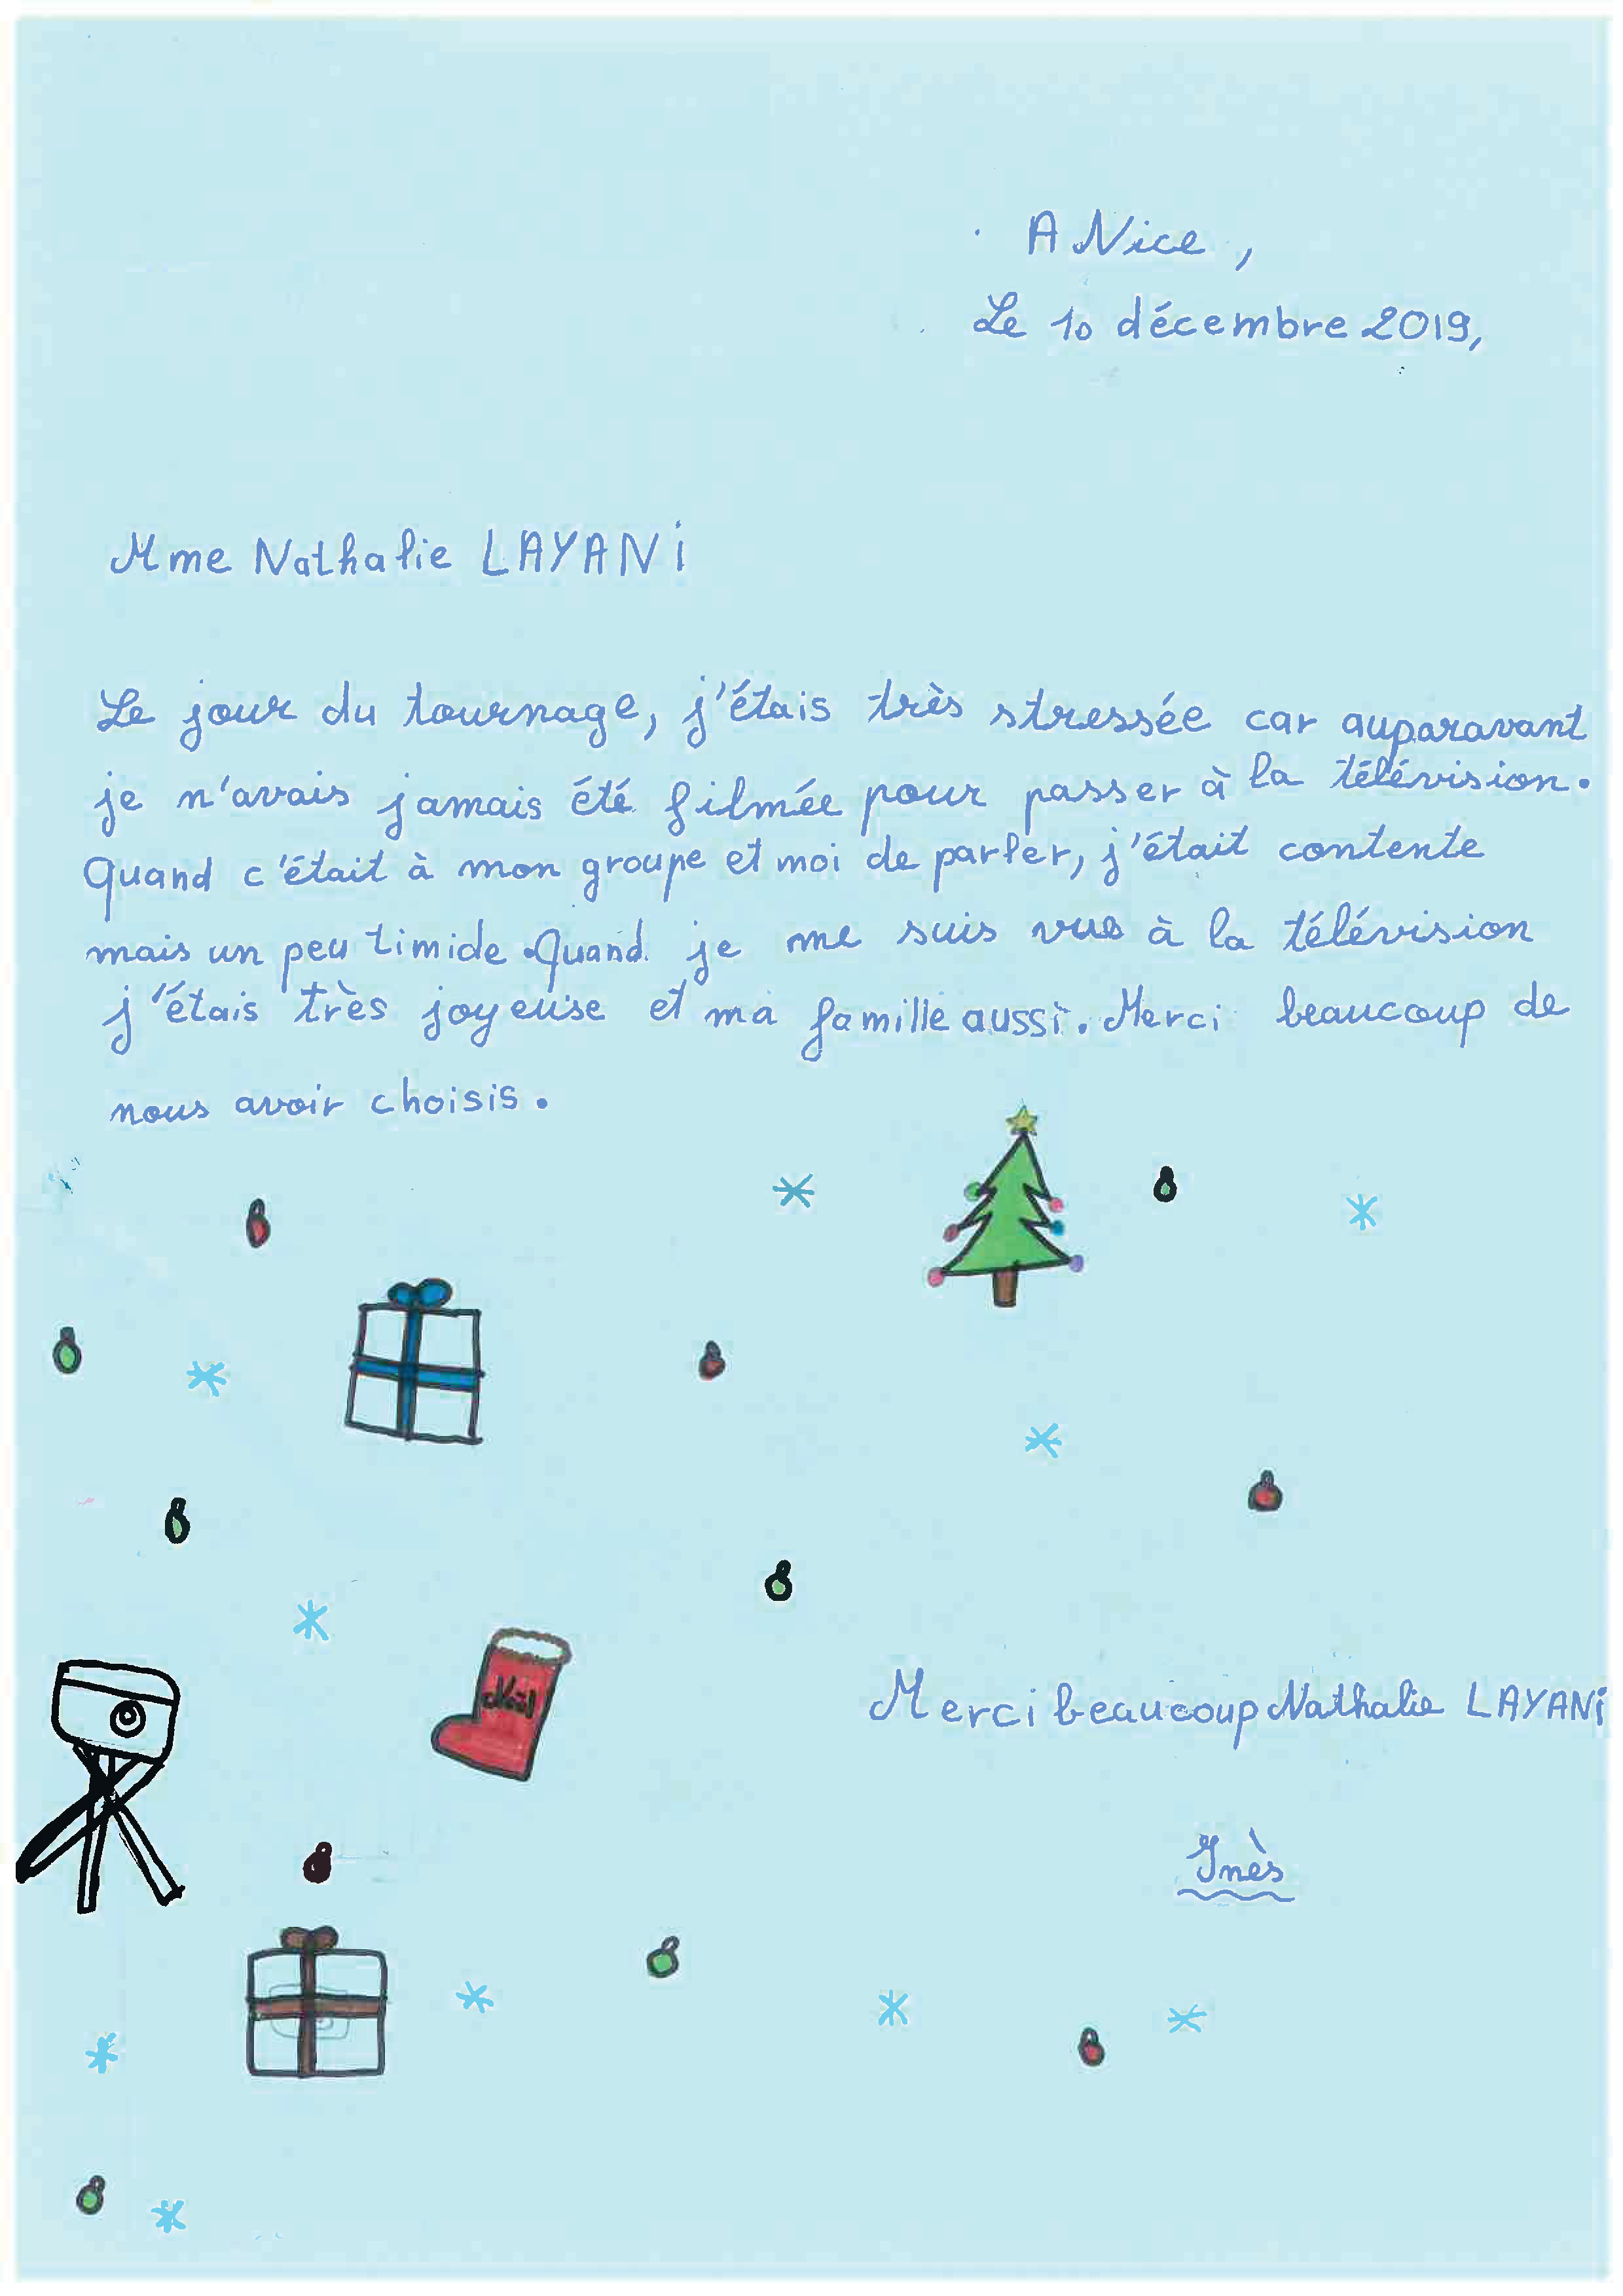 A Nice,
Le 10 décembre 2019,
Mme Nathalie LAYANi
Le jour du tournage, j'étais très stressée car auparavant
je n'avais jamais été filmée pour passer à la télévision.
Quand c'était à mon groupe et moi de parler, j'était contente
mais un peu timide. Quand je me suis vue à la télévision
j'étais très joyeuse et ma famille aussi. Merci beaucoup de
nous avoir choisis.
Noël
Merci beaucoup Nathalie LAYANi
Inès